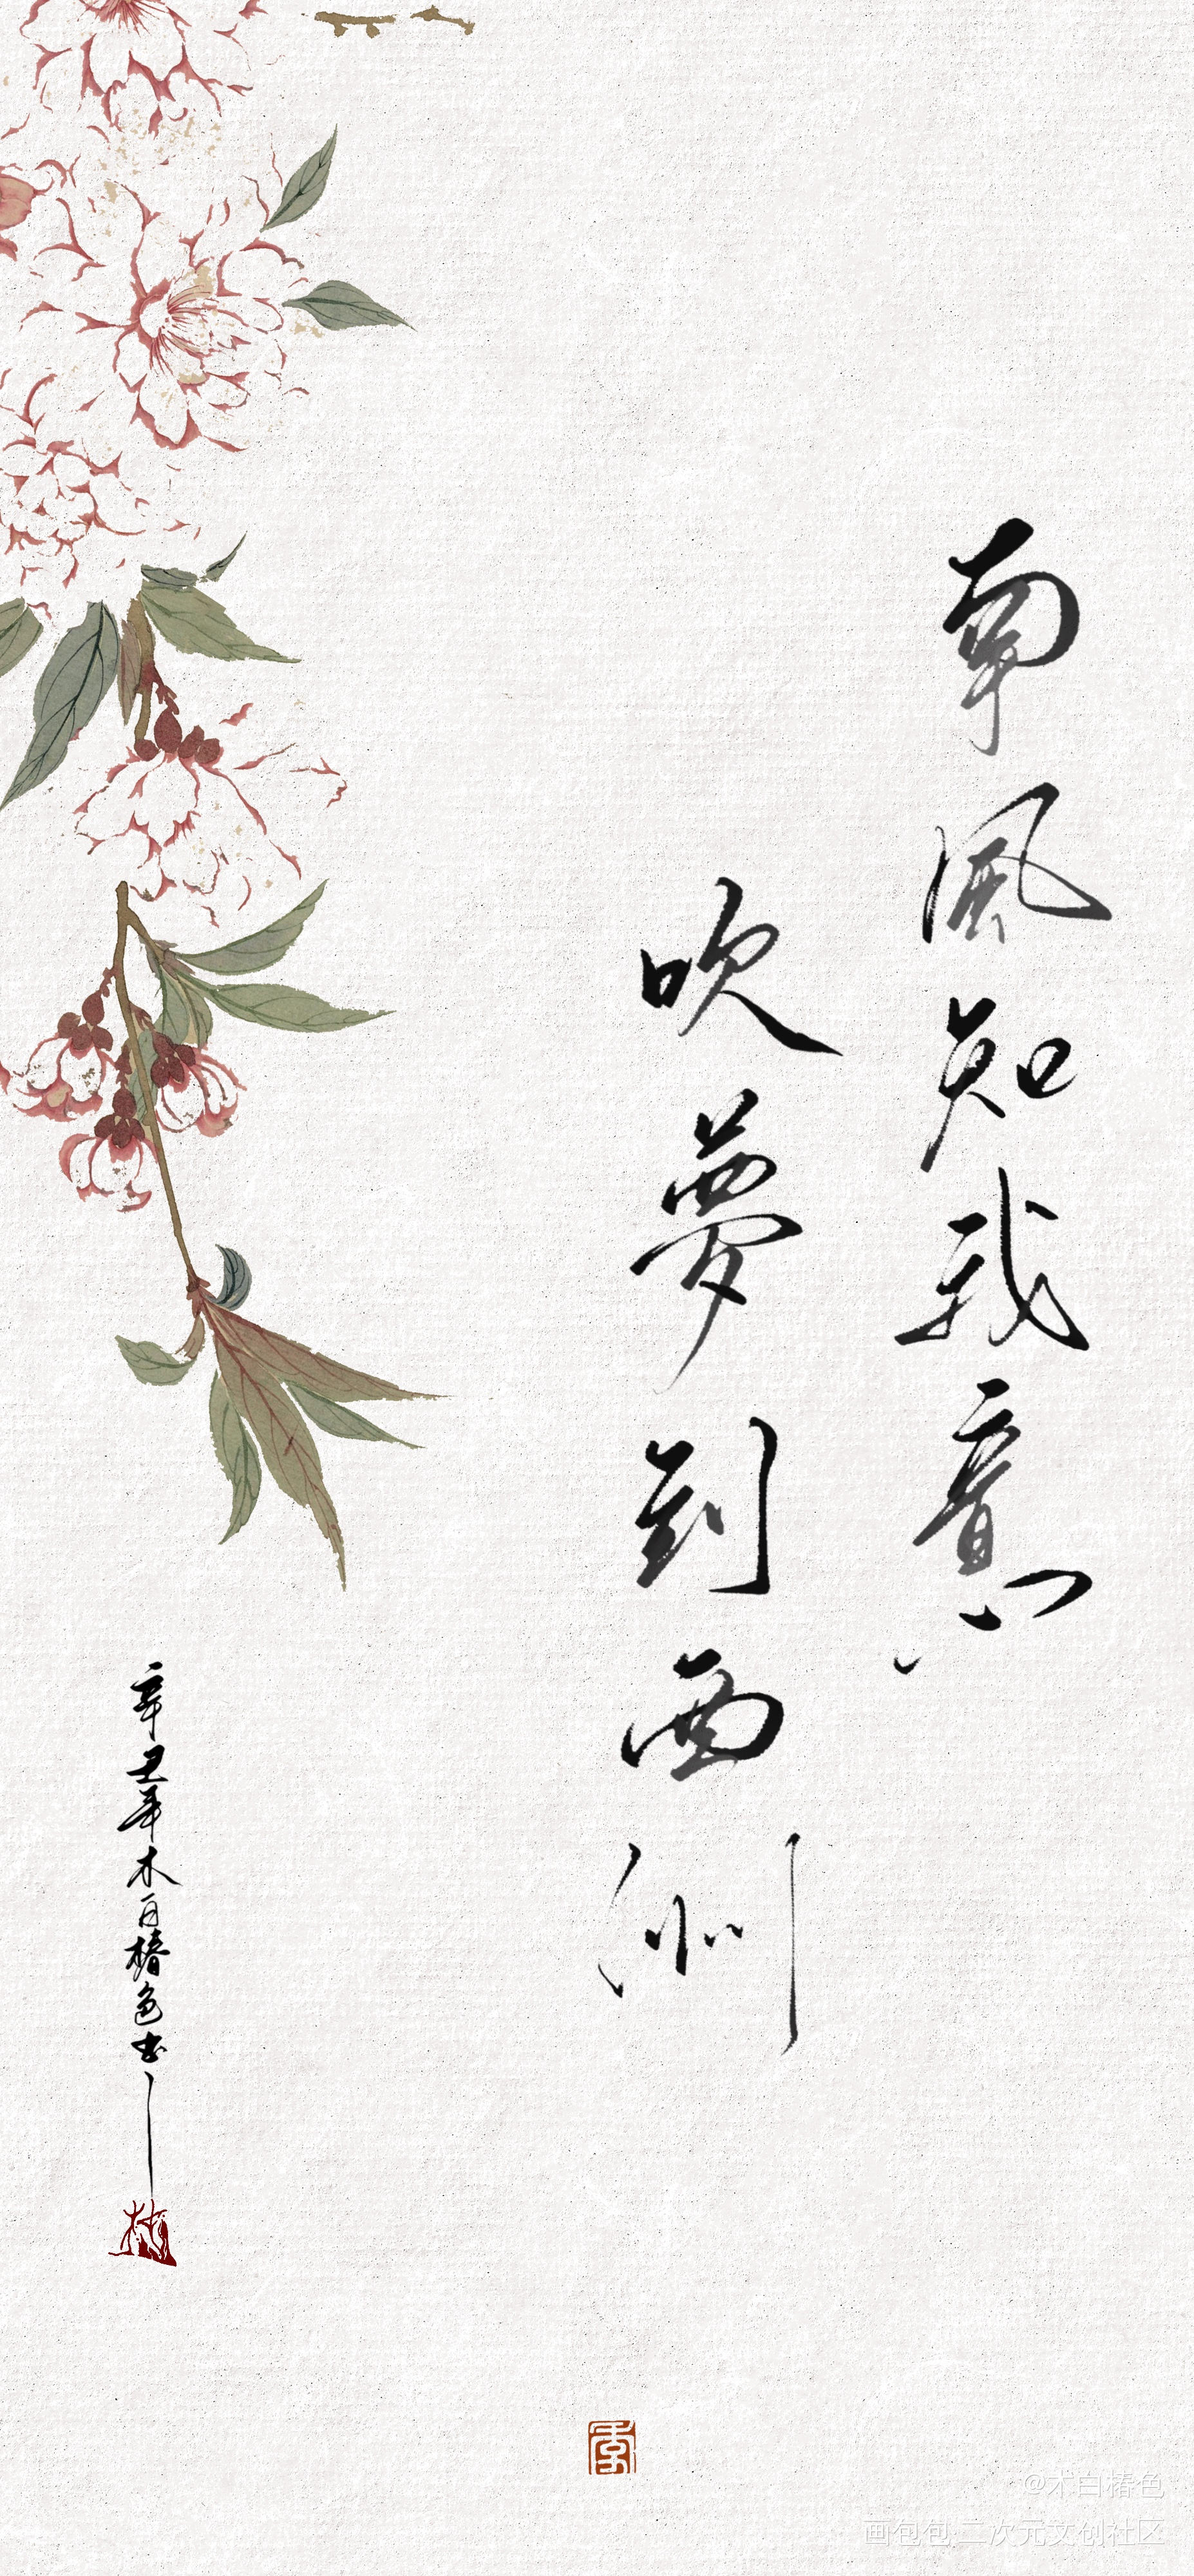 南風知我意
吹夢到西洲
辛丑年木白椿色書
@木白椿色
画包包 二次元文创社区